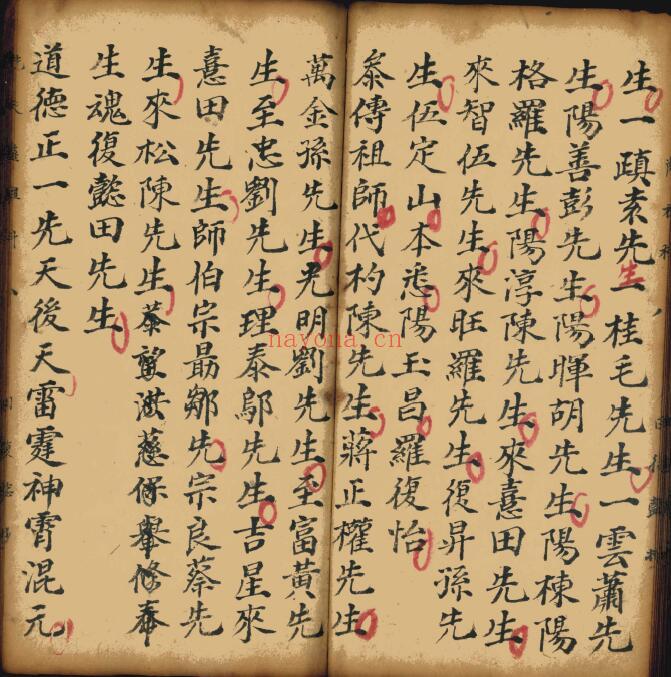 生一蹎素先生一桂毛先生一雲蕭先
生陽善彭先生陽暉胡先生陽棟陽
格羅先生陽淳陳先生來憙田先生
來智伍先生來旺羅先生復昇孫先
生伍定山本恷陽玉昌羅復怡
叅傳祖師代杓陳先生蔣正權先生
萬金孫先生光明劉先生至富黃先
生至忠劉先生理泰鄔先生吉星來
憙田先生師伯宗勗鄒先宗良蔡先
生來松陳先生叅慈保舉修奉
生魂復懿田先生
道德正一先天後天雷霆神霄混元
nayona.cn